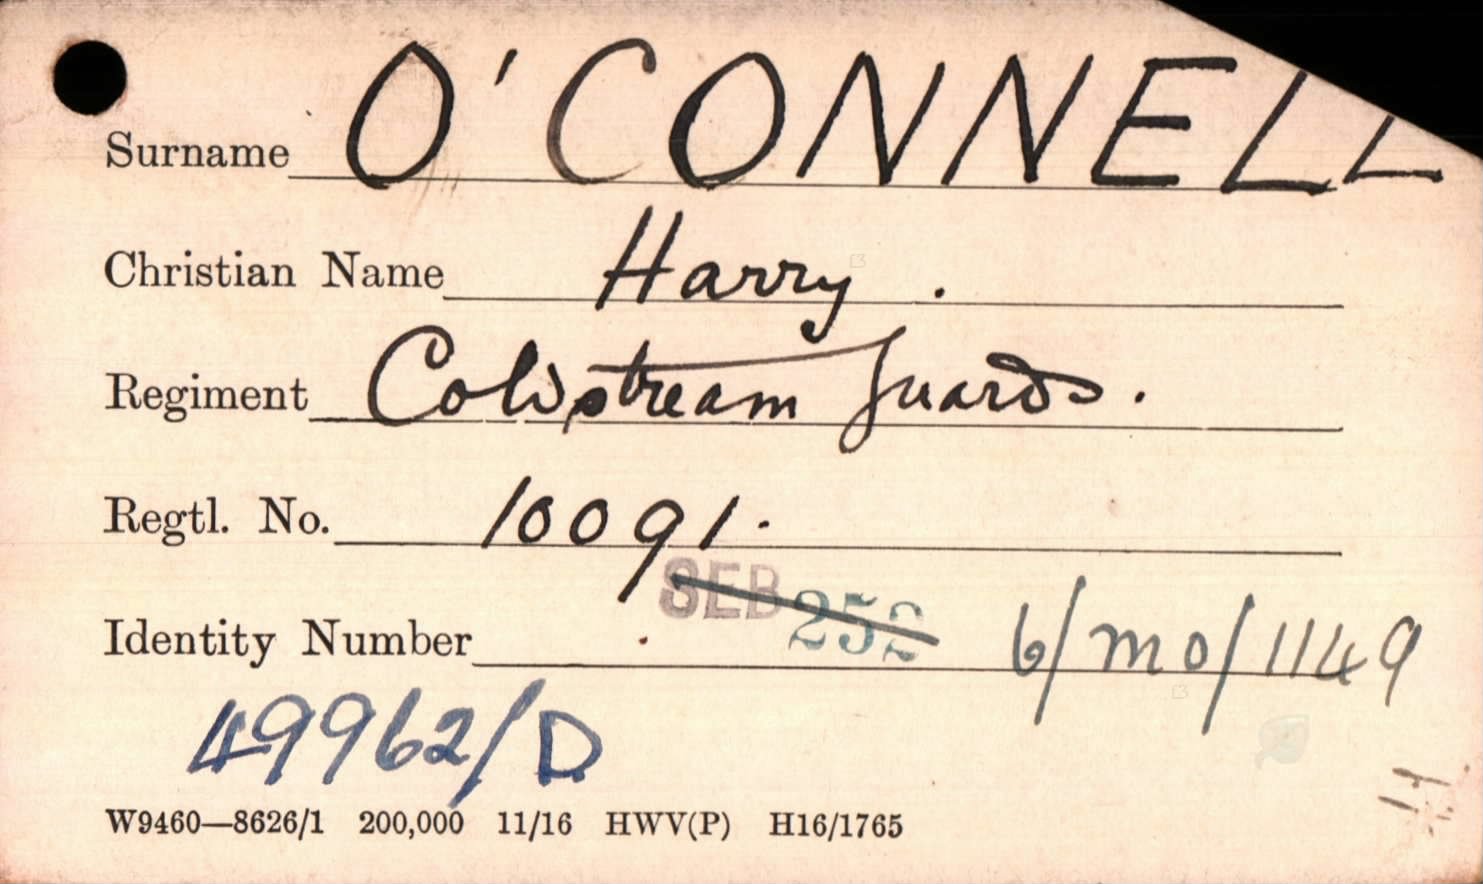 Surname O'CONNELL
Christian Name Harry.
Regiment Coldstream Guards.
Regtl. No. 10091.
Identity Number SEB 252 6/MO/1149
49962/D
W9460—8626/1 200,000 11/16 HWV(P) H16/1765